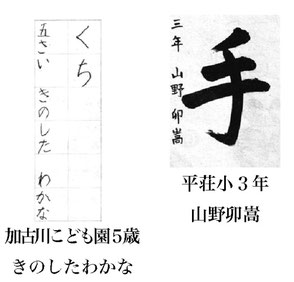 くち
五さい きのした わかな
加古川こども園5歳
きのしたわかな
手
三年 山野卯嵩
平荘小3年
山野卯嵩